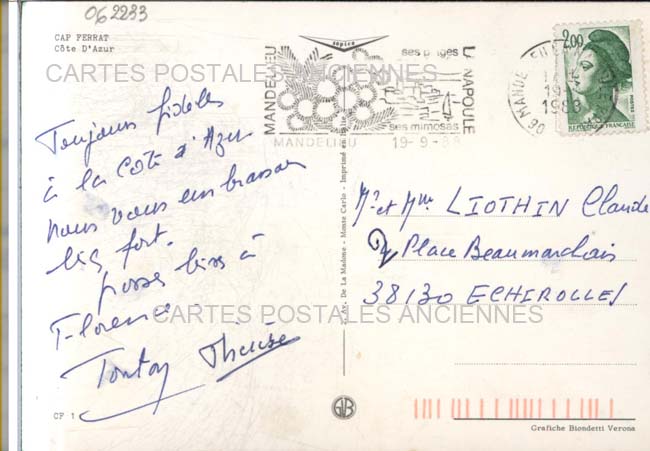 062233
CAP FERRAT
Côte D'Azur
CARTES POSTALES ANCIENNES
Toujours fidèles
à la Côte d'Azur
nous vous embrassons
bien fort.
grosses bises à
Florence.
Tonton Thérèse
CF 1
MANDELIEU
ses plages
ses mimosas
LA NAPOULE
MANDELIEU 19-9-88
06 MANDELIEU
19-9
1988
2,00
POSTES
REPUBLIQUE FRANCAISE
Av. De La Madone - Monte Carlo - Imprimé en Italie
Mr et Mme LIOTHIN Claude
Place Beaumarchais
38130 ECHIROLLES
CARTES POSTALES ANCIENNES
Grafiche Biondetti Verona